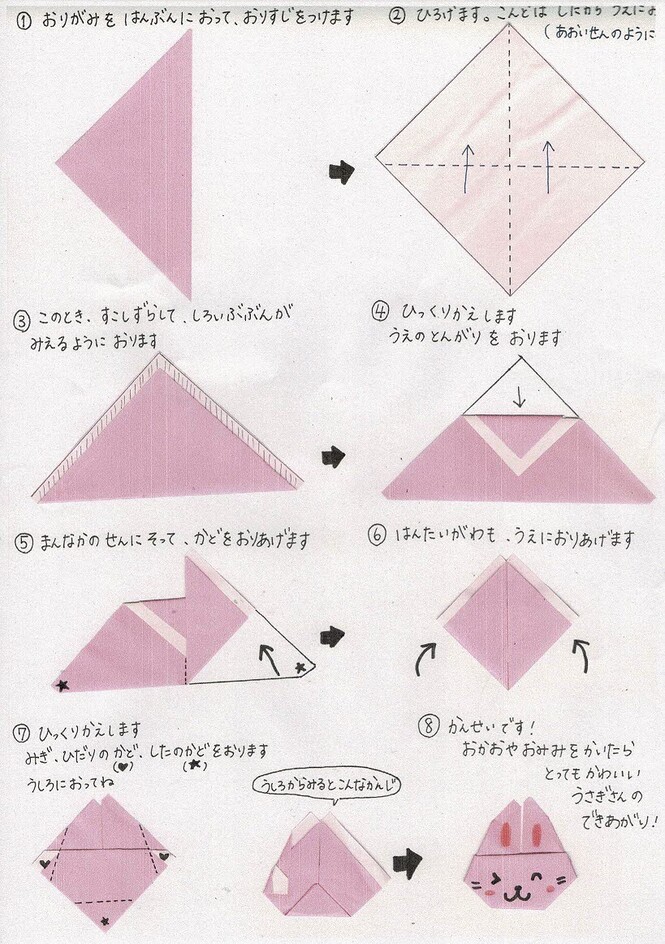 ① おりがみを はんぶんに おって、おりすじをつけます
② ひろげます。こんどは したから うえに
(あおいせんのように
③ このとき、すこしずらして、しろいぶぶんが
みえるように おります
④ ひっくりかえします
うえのとんがり を おります
⑤ まんなかの せんに そって、かどをおりあげます
⑥ はんたいがわも、うえにおりあげます
⑦ ひっくりかえします
みぎ、ひだりの かど、したのかどをおります
(♥) (★)
うしろにおってね
うしろからみるとこんなかんじ
⑧ かんせいです!
おかおや おみみを かいたら
とっても かわいい
うさぎさんの
できあがり!